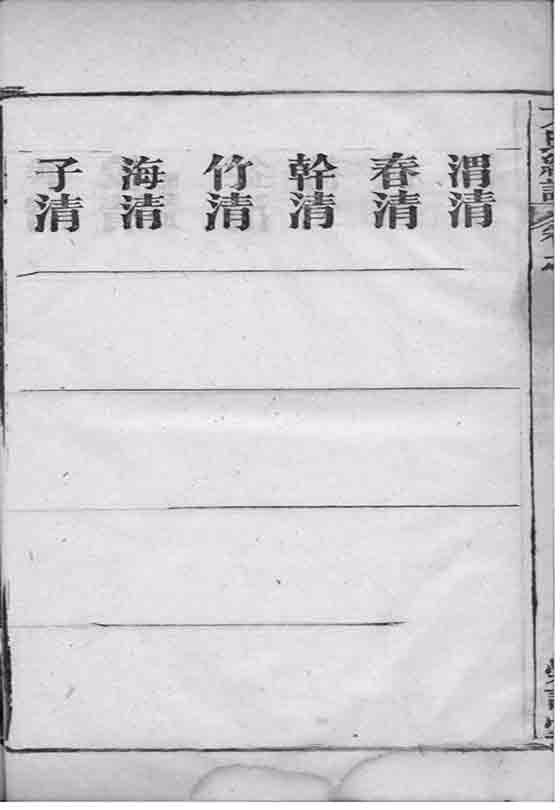 渭清
春清
幹清
竹清
海清
子清